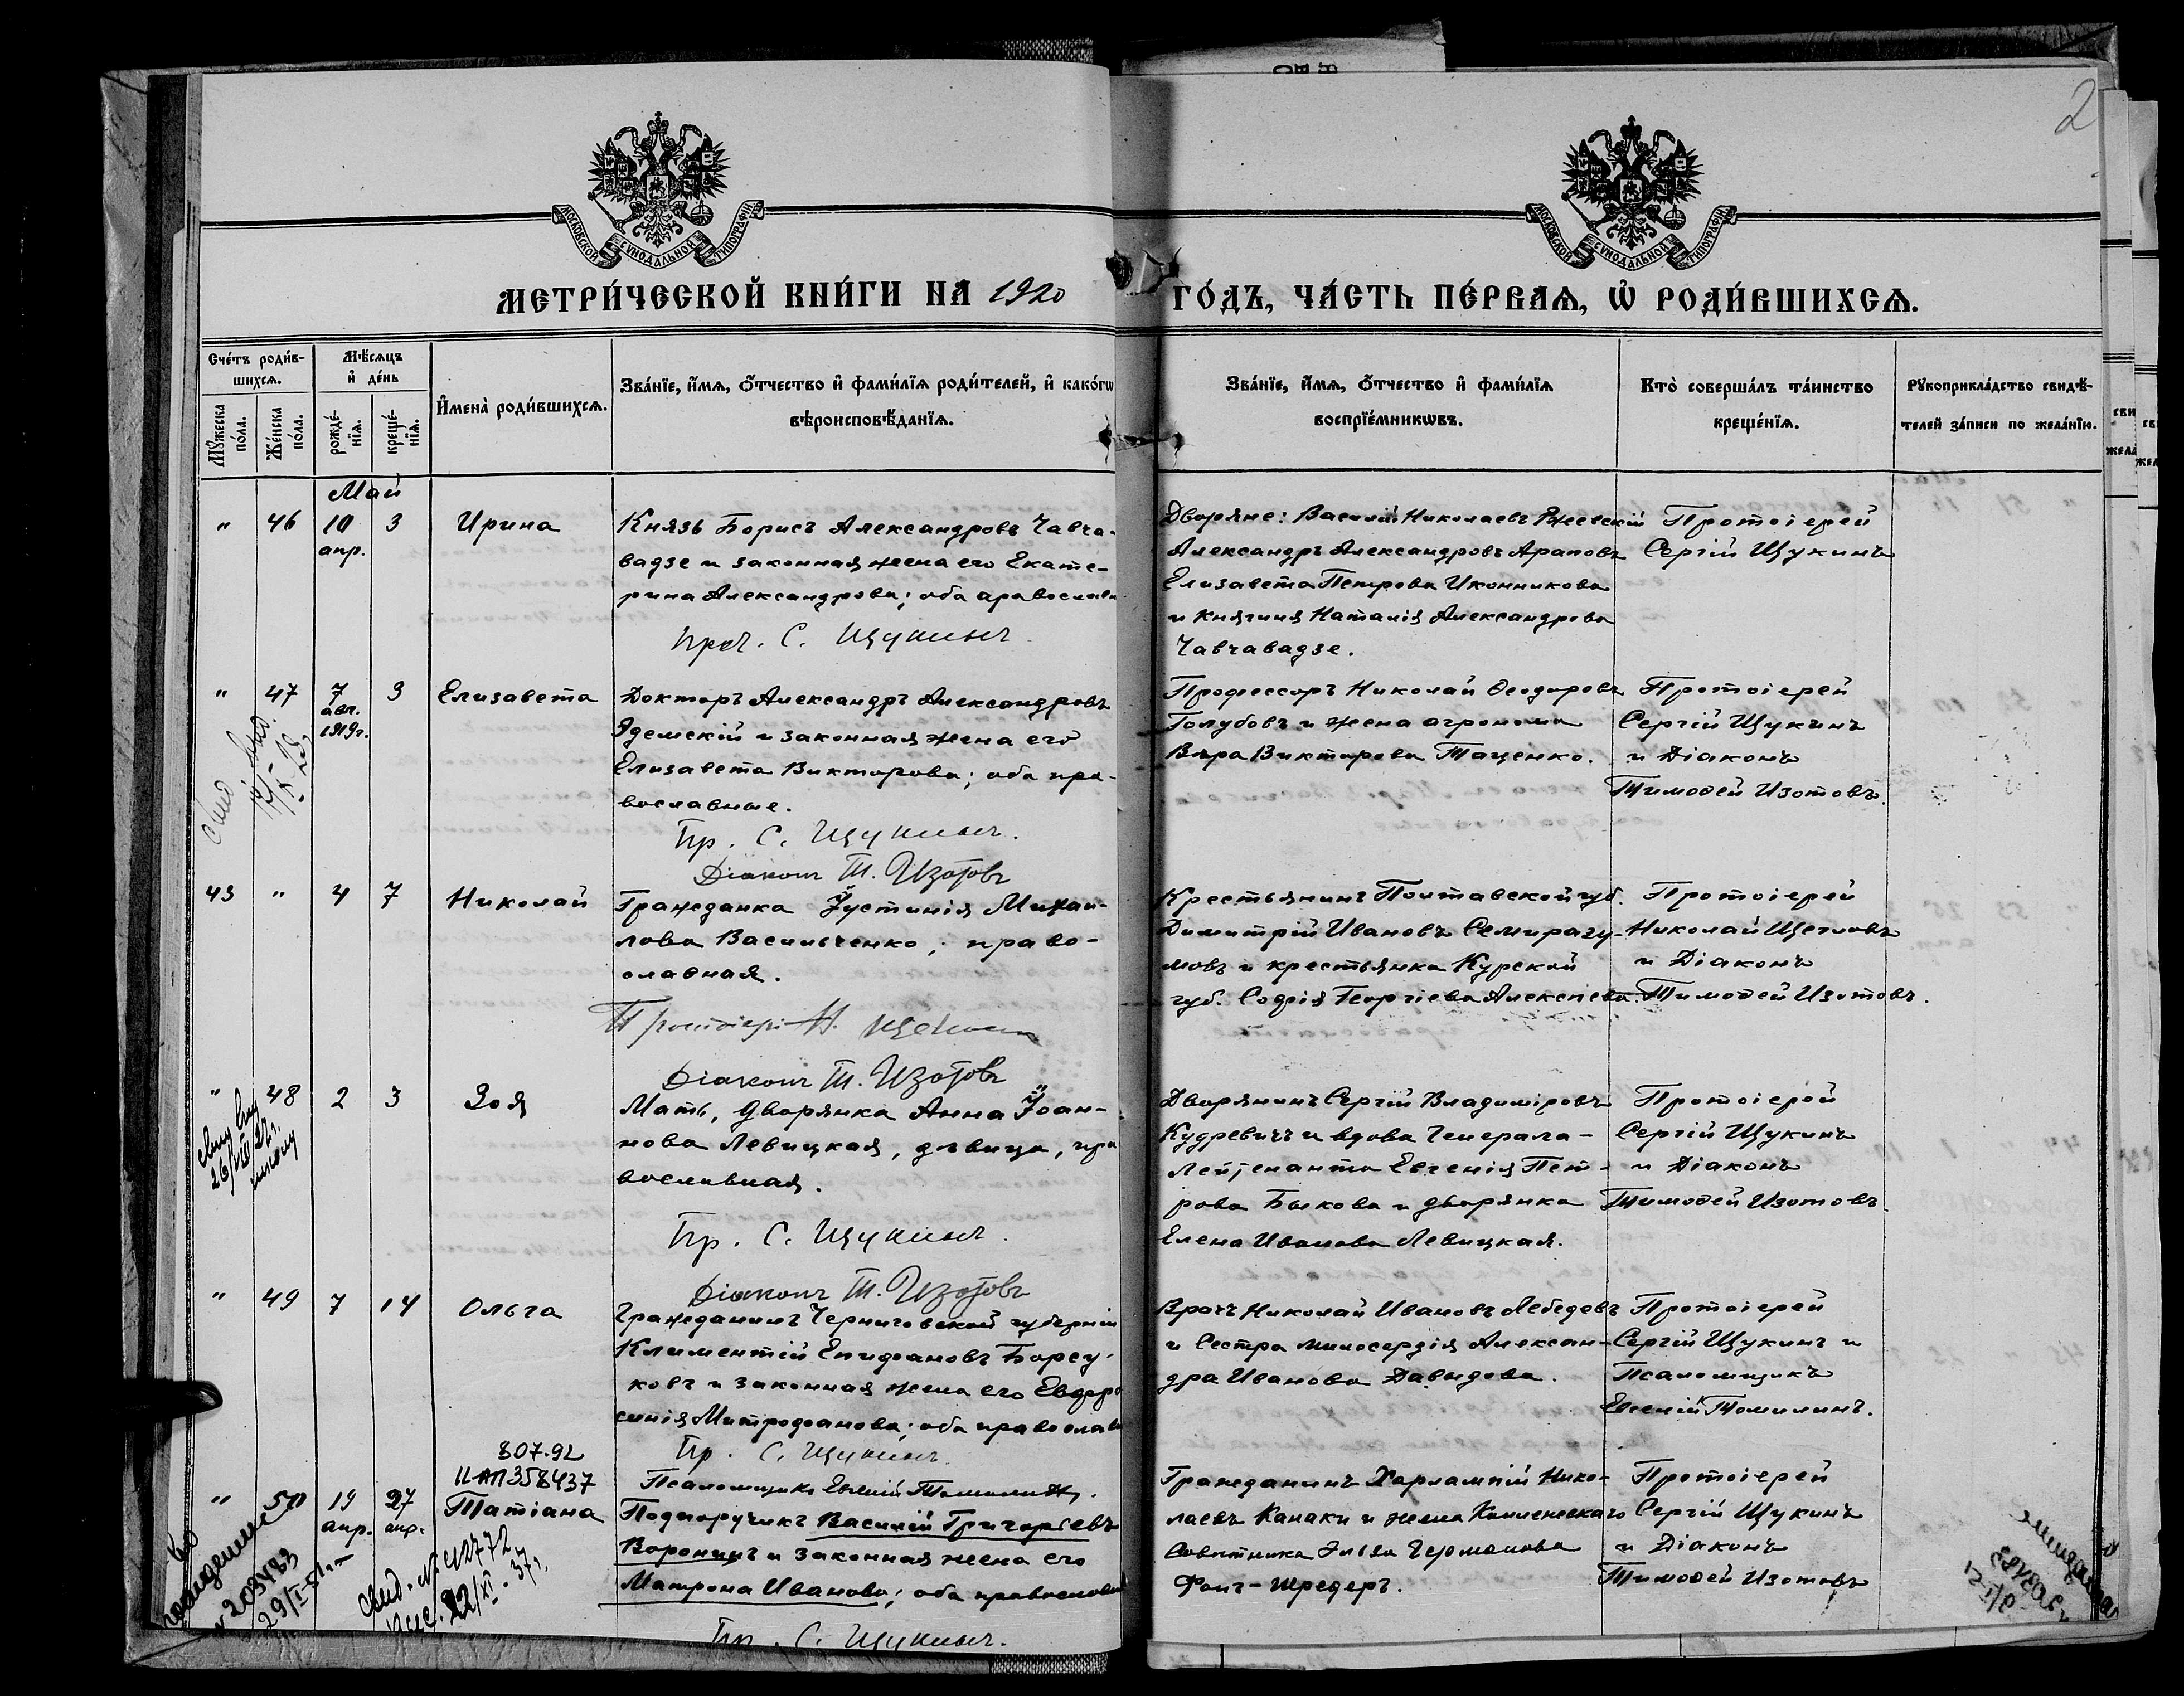 2
МОСКОВСКОЙ СѴНОДАЛЬНОЙ ТИПОГРАФІИ
МОСКОВСКОЙ СѴНОДАЛЬНОЙ ТИПОГРАФІИ
МЕТРИ́ЧЕСКОЙ КНИ́ГИ НА 1920 ГО́ДЪ, ЧА́СТЬ ПЕ́РВАЯ, Ѡ РОДИ́ВШИХСѦ.
Сче́тъ роди́в-
шихсѧ.
Мꙋ́жеска по́ла.
Же́нска по́ла.
Мѣ́сѧцъ
и҆ де́нь
рожде́-
нїѧ.
креще́-
нїѧ.
И҆мена̀ роди́вшихсѧ.
Зва́нїе, и҆́мѧ, о҆́тчество и҆ фами́лїѧ роди́телей, и҆ како́гѡ
вѣроисповѣ́данїѧ.
Зва́нїе, и҆́мѧ, о҆́тчество и҆ фами́лїѧ
воспрїе́мникѡвъ.
Кто̀ соверша́лъ та́инство
креще́нїѧ.
Рꙋкоприкла́дство свидѣ́-
телей за́писи по жела́нїю.
Май
" 46 10 3 Ирина
апр.
Князь Борисъ Александровъ Чавча-
вадзе и законная жена его Екате-
рина Александрова; оба православн
Прот. С. Щукинъ
Дворяне: Василій Николаевъ Ржевскій
Александръ Александровъ Араповъ
Елизавета Петрова Иконникова
и Княгиня Наталія Александрова
Чавчавадзе.
Протоіерей
Сергій Щукинъ
" 47 7 3 Елизавета
авг.
1919г.
Докторъ Александръ Александровъ
Эдемскій и законная жена его
Елизавета Викторова; оба пра-
вославные.
Пр. С. Щукинъ.
Діаконъ Т. Изотовъ
Профессоръ Николай Ѳеодоровъ
Голубовъ и жена агронома
Вѣра Викторова Таценко.
Протоіерей
Сергій Щукинъ
и Діаконъ
Тимоѳей Изотовъ.
43 " 4 7 Николай
Гражданка Іустинія Михаи-
лова Васильченко; право-
славная.
Протоіерей Н.
Діаконъ Т. Изотовъ
Крестьянинъ Полтавской губ.
Димитрій Ивановъ Семирагу-
мовъ и крестьянка Курской
губ. Софія Георгіева Алексѣева.
Протоіерей
Николай Щегловъ
и Діаконъ
Тимоѳей Изотовъ.
" 48 2 3 Зоя
Мать, дворянка Анна Іоан-
нова Левицкая, дѣвица, пра
вославная.
Пр. С. Щукинъ.
Діаконъ Т. Изотовъ
Дворянинъ Сергій Владиміровъ
Кудревичъ и вдова Генерала-
Лейтенанта Евгенія Пет-
рова Быкова и дворянка
Елена Иванова Левицкая.
Протоіерей
Сергій Щукинъ
и Діаконъ
Тимоѳей Изотовъ.
" 49 7 14 Ольга
Гражданинъ Черниговской губерніи
Климентій Епифановъ Борсу-
ковъ и законная жена его Евдро
синія Митрофанова; оба православ
Пр. С. Щукинъ.
Псаломщикъ Евгеній Томилинъ.
Врачъ Николай Ивановъ Лебедевъ
и Сестра милосердія Алексан-
дра Иванова Давыдова.
Протоіерей
Сергій Щукинъ и
Псаломщикъ
Евгеній Томилинъ.
807.92
II-АП 358437
" 50 19 27 Татіана
апр. апр.
Подпоручикъ Василій Григорьевъ
Воронинъ и законная жена его
Матрона Иванова; оба православн
Пр. С. Щукинъ.
Гражданинъ Харлампій Нико-
лаевъ Канаки и жена
Совѣтника Эльза Германова
Фонъ-Шредеръ.
Протоіерей
Сергій Щукинъ
и Діаконъ
Тимоѳей Изотовъ